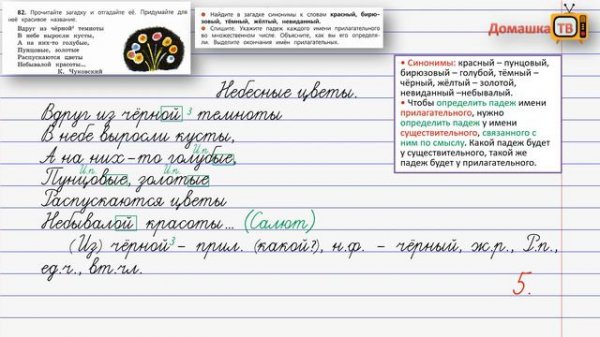 82. Прочитайте загадку и отгадайте её. Придумайте для
неё красивое название.
Вдруг из чёрной³ темноты
В небе выросли кусты,
А на них-то голубые,
Пунцовые, золотые
Распускаются цветы
Небывалой красоты...
К. Чуковский
● Найдите в загадке синонимы к словам красный, бирю-
зовый, тёмный, жёлтый, невиданный.
● Спишите. Укажите падеж каждого имени прилагательного
во множественном числе. Объясните, как вы его определя-
ли. Выделите окончания имён прилагательных.
Домашка ТВ
• Синонимы: красный – пунцовый,
бирюзовый – голубой, тёмный –
чёрный, жёлтый – золотой,
невиданный –небывалый.
• Чтобы определить падеж имени
прилагательного, нужно
определить падеж у имени
существительного, связанного с
ним по смыслу. Какой падеж будет
у существительного, такой же
падеж будет у прилагательного.
Небесные цветы.
Вдруг из чёрной 3 темноты
В небе выросли кусты,
И.п.
А на них-то голубые,
И.п. И.п.
Пунцовые, золотые
Распускаются цветы
Небывалой красоты... (Салют)
(Из) чёрной³ – прил. (какой?), н.ф. – чёрный, ж.р., Р.п.,
ед.ч., вт.чл.
5.